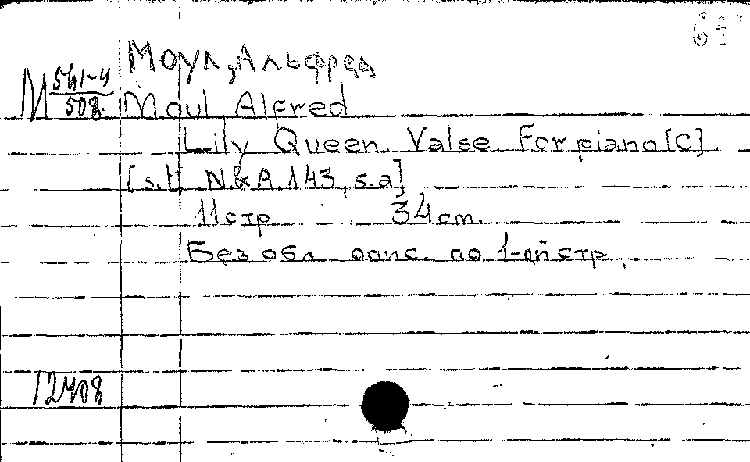 Моул, Альфред
М 541-4/508
Moul Alfred
Lily Queen. Valse. For piano [C]
[s.l] N&A 143, s.a]
11 стр 34 cm.
Без обл опис. по 1-ой стр.
12408